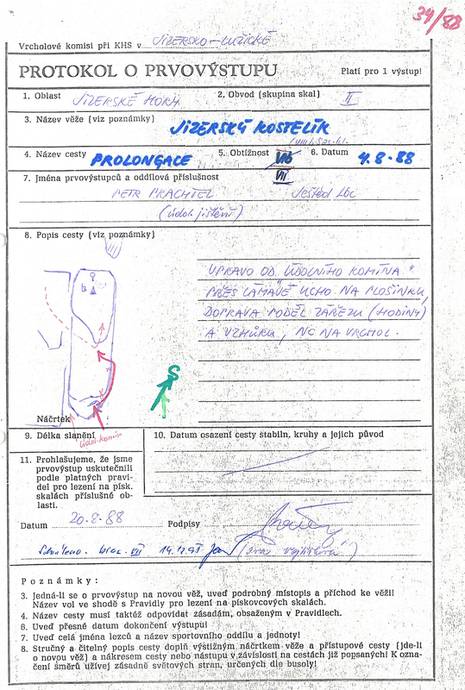 34/88
Vrcholové komisi při KHS v JIZERSKO-LUŽICKÉ
PROTOKOL O PRVOVÝSTUPU Platí pro 1 výstup!
1. Oblast JIZERSKÉ HORY 2. Obvod (skupina skal) II
3. Název věže (viz poznámky) JIZERSKÝ KOSTELÍK
4. Název cesty PROLONGACE 5. Obtížnost VIIb 6. Datum 4.8.88
VII
7. Jména prvovýstupců a oddílová příslušnost
PETR PRACHTEL Ještěd Lbc
(údol. jištění)
8. Popis cesty (viz poznámky)
VPRAVO OD "ÚDOLNÍHO KOMÍNA"
PŘES LÁMAVÉ UCHO NA PLOŠINKU,
DOPRAVA PODÉL ZÁŘEZU (HODINY)
A VZHŮRU, NA VRCHOL.
S
Náčrtek
Údol. komín
9. Délka slanění
10. Datum osazení cesty stabiln. kruhy a jejich původ
11. Prohlašujeme, že jsme
prvovýstup uskutečnili
podle platných pravi-
del pro lezení na písk.
skalách příslušné ob-
lasti.
Datum 20.8.88 Podpisy
Schváleno. VII 14.12.88
Poznámky:
3. Jedná-li se o prvovýstup na novou věž, uveď podrobný místopis a příchod ke věži!
Název vol ve shodě s Pravidly pro lezení na pískovcových skalách.
4. Název cesty musí taktéž odpovídat zásadám, obsaženým v Pravidlech.
6. Uveď přesné datum dokončení výstupu!
7. Uveď celá jména lezců a název sportovního oddílu a jednoty!
8. Stručný a čitelný popis cesty doplň výstižným náčrtkem věže a přístupové cesty (jde-li
o novou věž) a nákresem cesty nebo nástupu v závislosti na cestách již popsaných! K ozna-
čení směrů užívej zásadně světových stran, určených dle busoly!